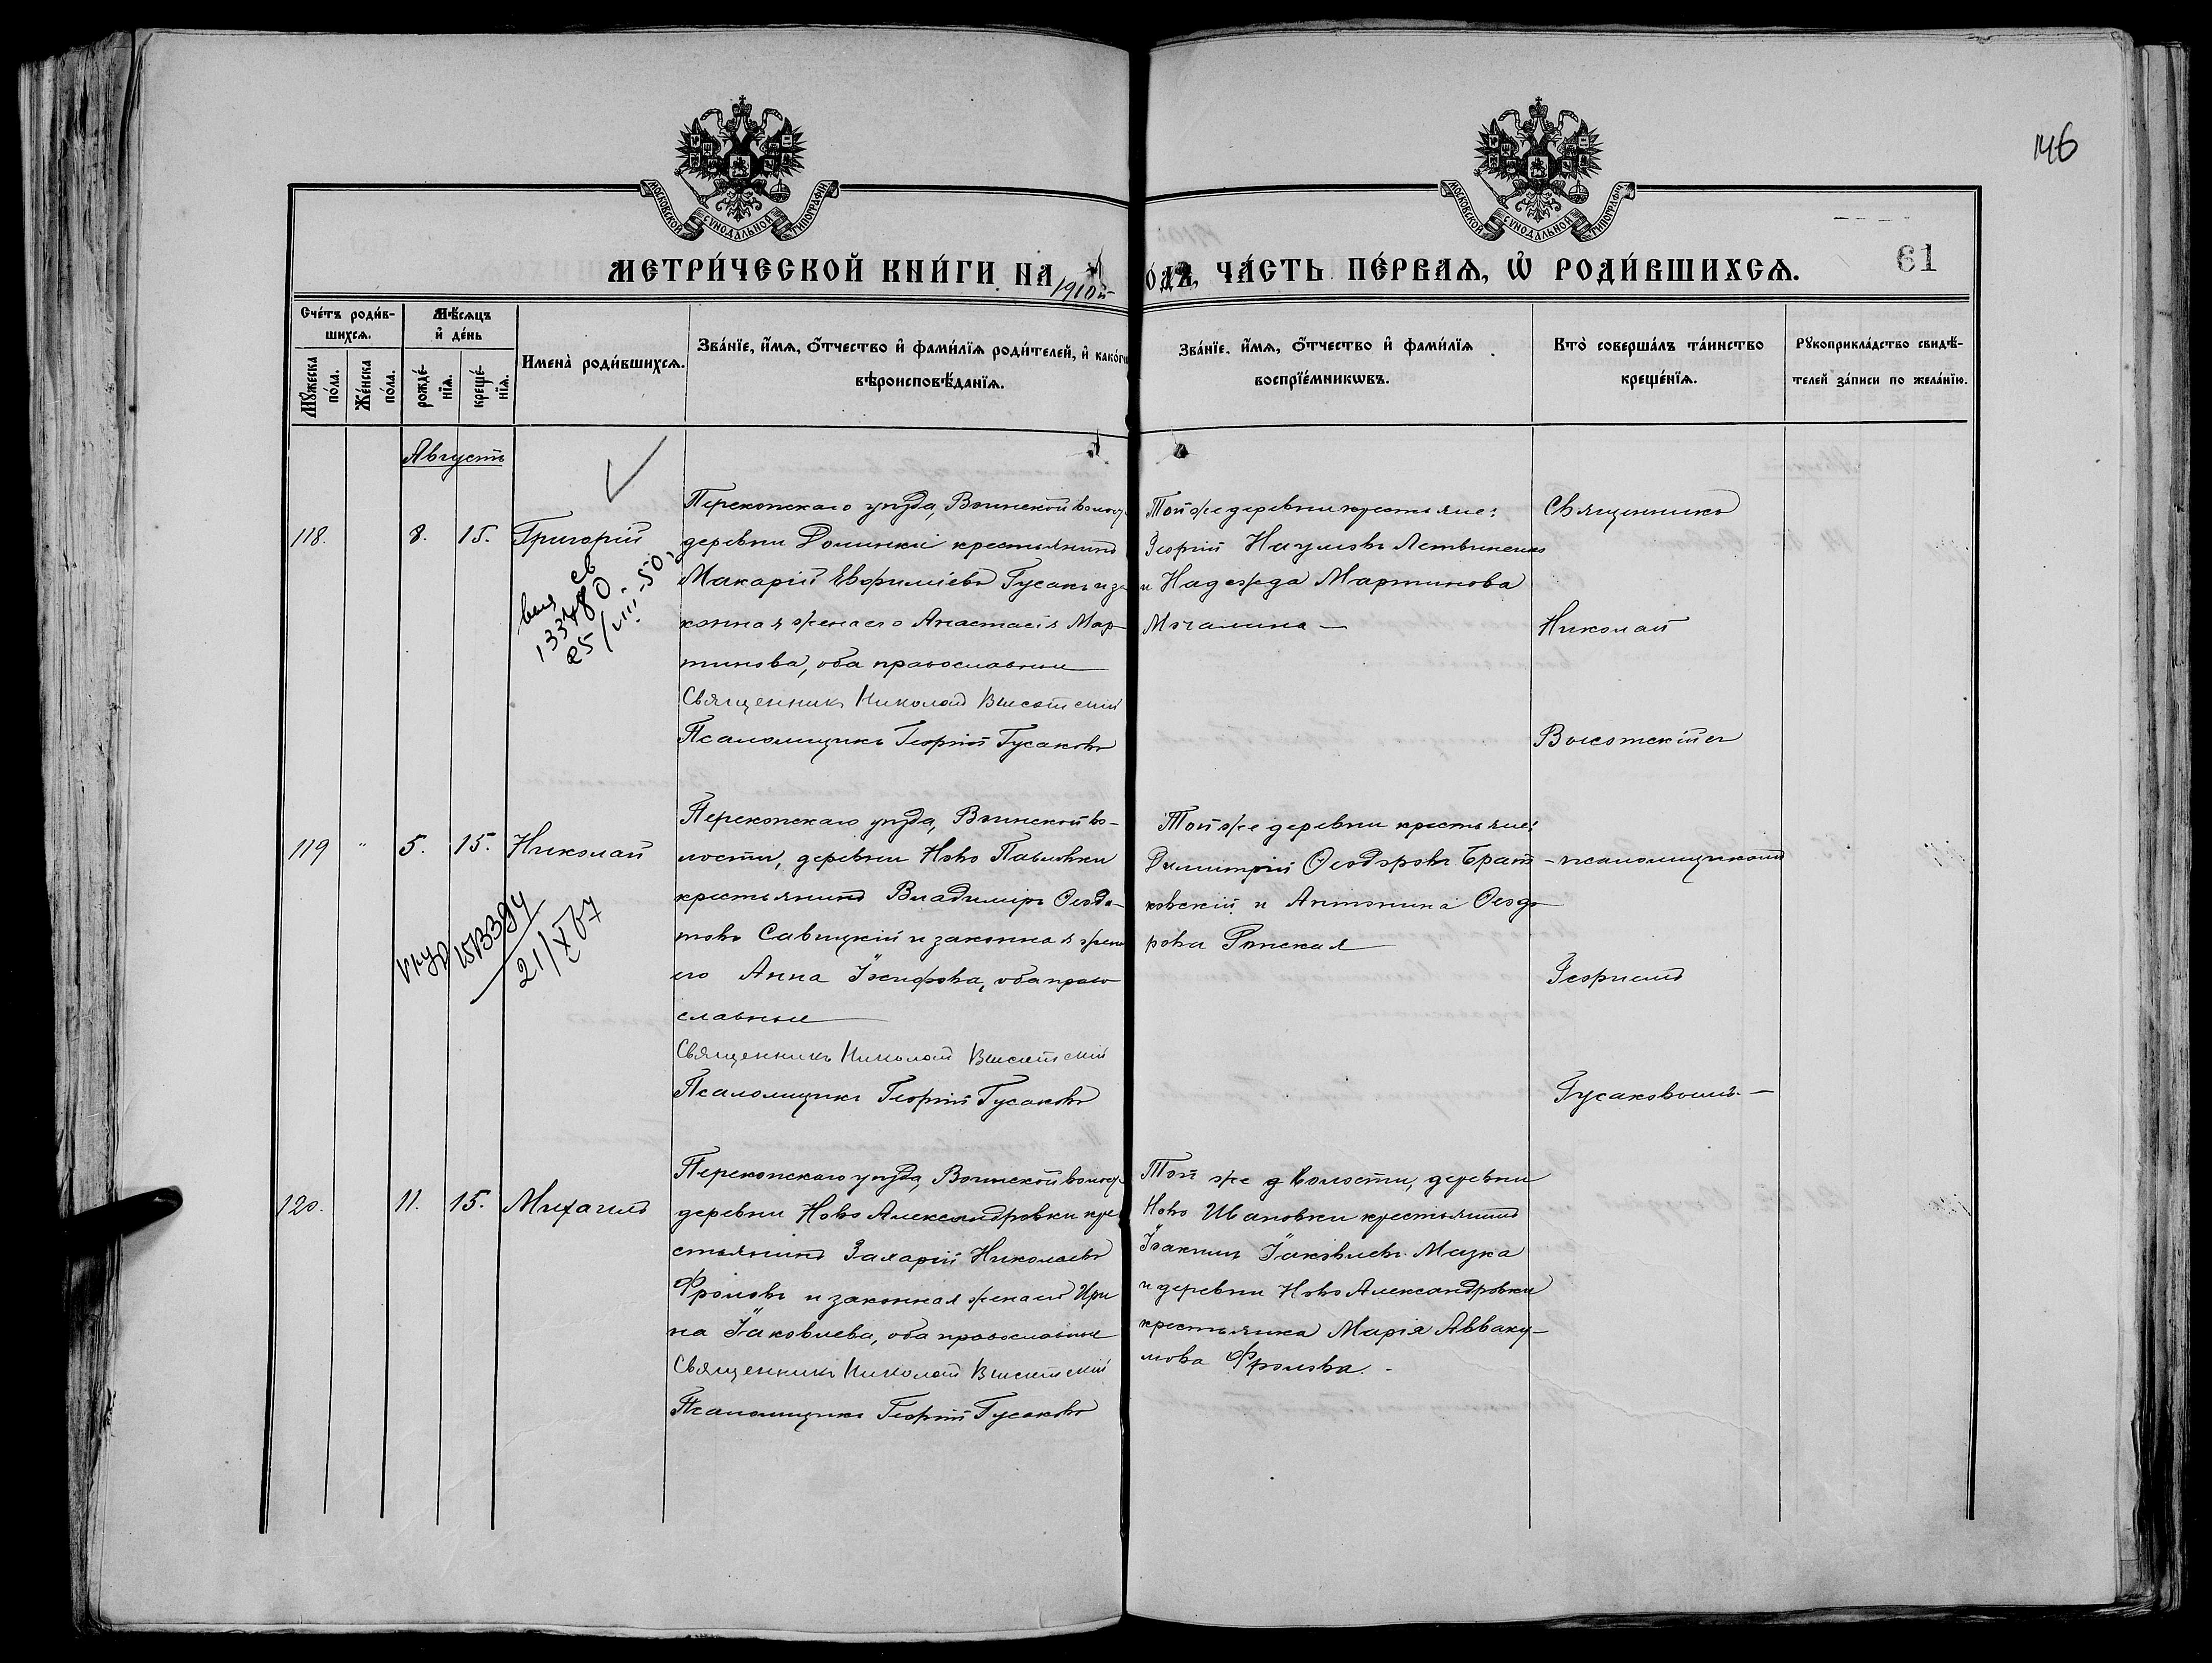 146
МОСКОВСКОЙ СѴНОДАЛЬНОЙ ТИПОГРАФІИ
МОСКОВСКОЙ СѴНОДАЛЬНОЙ ТИПОГРАФІИ
61
МЕТРИ́ЧЕСКОЙ КНИ́ГИ НА 1910й ЧА́СТЬ ПЕ́РВАѦ, Ѡ҆ РОДИ́ВШИХСѦ.
Сче́тъ роди́в-
шихсѧ.
Мѣ́сѧцъ
и҆ де́нь
Мꙋ́жеска
по́ла.
Же́нска
по́ла.
рожде́-
нїѧ.
креще́-
нїѧ.
Имена̀ роди́вшихсѧ.
Зва́нїе, и҆́мѧ, ѻ҆́тчество и҆ фами́лїѧ роди́телей, и҆ како́гѡ
вѣроисповѣ́данїѧ.
Зва́нїе, и҆́мѧ, ѻ҆́тчество и҆ фами́лїѧ
воспрїе́мникѡвъ.
Кто̀ соверша́лъ та́инство
креще́нїѧ.
Рꙋкоприкла́дство свидѣ́-
телей за́писи по жела́нїю.
Августъ
118. 8. 15. Григорій
133480
25/VIII-50
Перекопскаго уѣзда, Воинской волос.
деревни Долинки крестьянинъ
Макарій Евфиміевъ Гусакъ и за
конная жена его Анастасія Мар-
тинова, оба православные
Священникъ Николай Высотскій
Псаломщикъ Георгій Гусаковъ
Той же деревни крестьяне:
Георгій Наумовъ Литвиненко
и Надежда Мартинова
Мочалина
Священникъ
Николай
Высотскій съ
119 " 5. 15. Николай
21/X 67
Перекопскаго уѣзда, Воинской во-
лости, деревни Ново Павловки
крестьянинъ Владиміръ Ѳеодо-
товъ Савицкій и законная жена
его Анна Іосифова, оба право
славные
Священникъ Николай Высотскій
Псаломщикъ Георгій Гусаковъ
Той же деревни крестьяне:
Димитрій Ѳеодоровъ Брат
ковскій и Антонина Ѳеодо
рова
- псаломщикомъ
Георгіемъ
Гусаковымъ. -
120. 11. 15. Михаилъ
Перекопскаго уѣзда, Воинской волос.
деревни Ново Александровки кре
стьянинъ Захарій Николаевъ
Фроловъ и законная жена его Ири
на Іаковлева, оба православные
Священникъ Николай Высотскій
Псаломщикъ Георгій Гусаковъ
Той же волости, деревни
Ново Ивановки крестьянинъ
Іоакимъ Іаковлевъ Мазка
и деревни Ново Александровки
крестьянка Марія Авваку-
мова Фролова. -